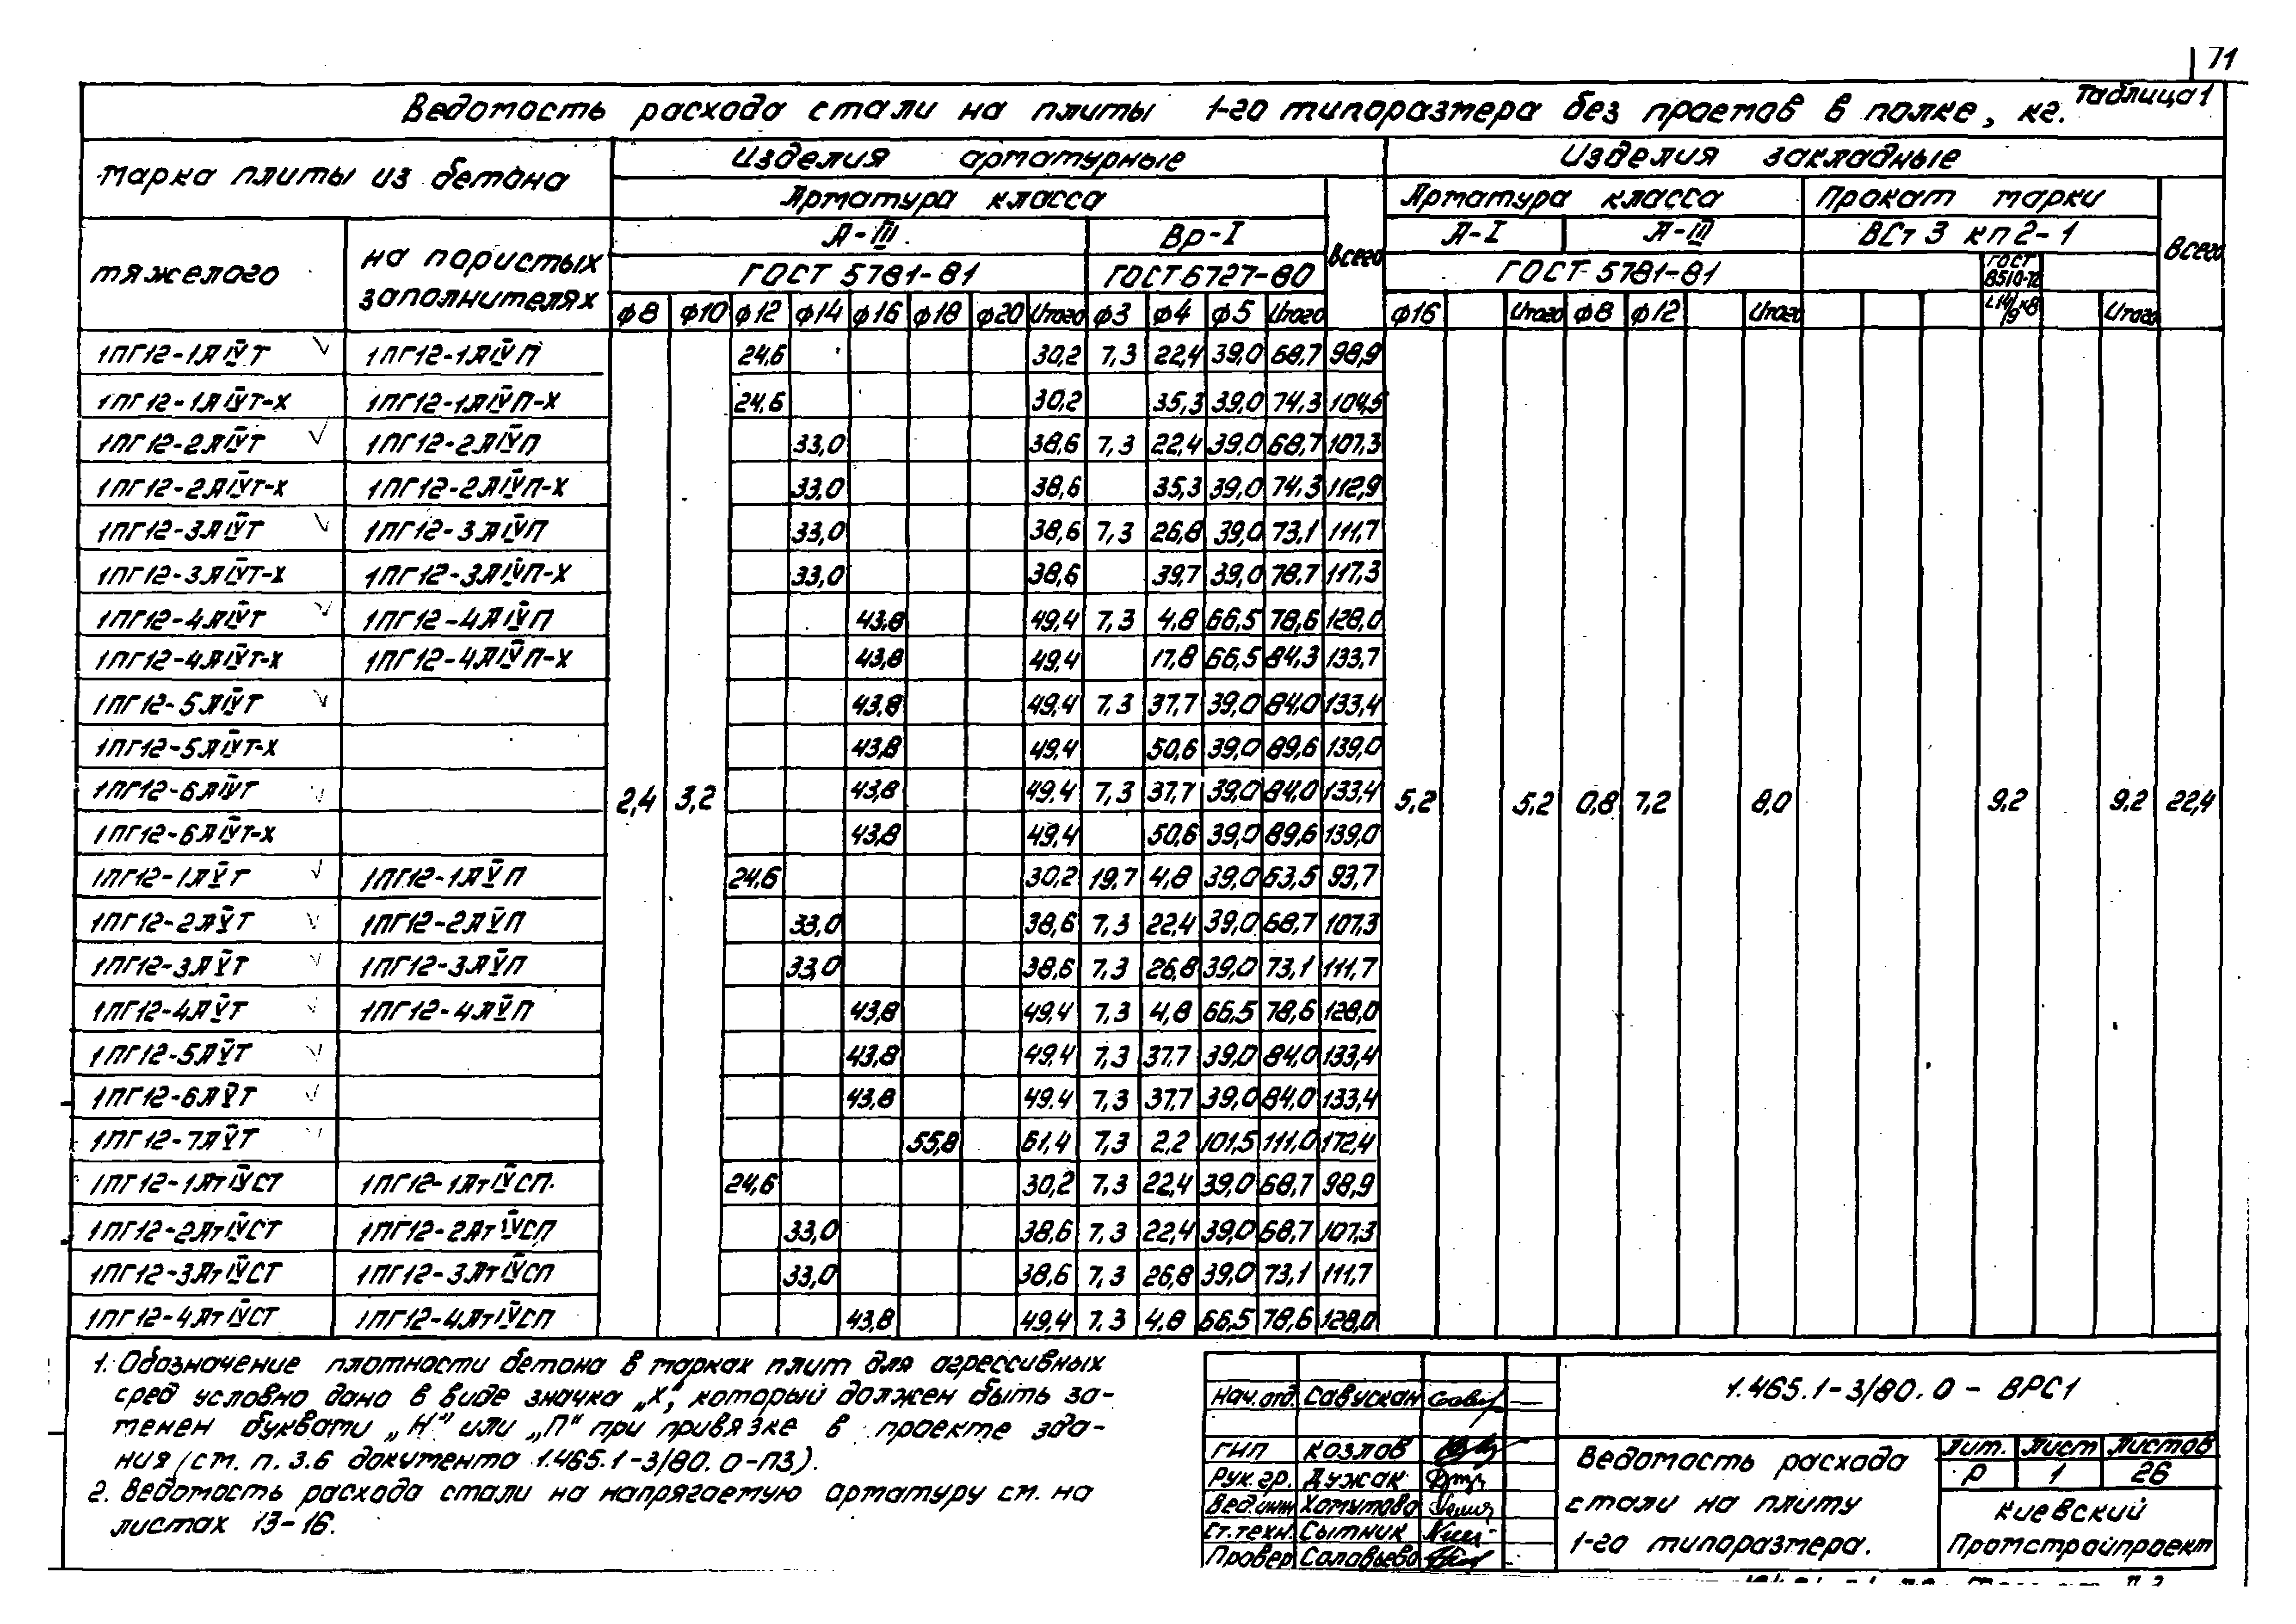 71
Таблица 1
Ведомость расхода стали на плиты 1-го типоразмера без проемов в полке, кг.
Марка плиты из бетона
Изделия арматурные
Изделия закладные
Арматура класса
Всего
Арматура класса
Прокат марки
Всего
тяжелого
на пористых заполнителях
А-III
Вр-I
А-I
А-III
ВСт 3 кп 2-1
ГОСТ 5781-81
ГОСТ 6727-80
ГОСТ 5781-81
ГОСТ 8510-72
ф8 ф10 ф12 ф14 ф16 ф18 ф20 Итого ф3 ф4 ф5 Итого ф16 Итого ф8 ф12 Итого Итого
1ПГ12-1АIVТ 1ПГ12-1АIVП 24,6 30,2 7,3 22,4 39,0 68,7 98,9
1ПГ12-1АIVТ-Х 1ПГ12-1АIVП-Х 24,6 30,2 35,3 39,0 74,3 104,5
1ПГ12-2АIVТ 1ПГ12-2АIVП 33,0 38,6 7,3 22,4 39,0 68,7 107,3
1ПГ12-2АIVТ-Х 1ПГ12-2АIVП-Х 33,0 38,6 35,3 39,0 74,3 112,9
1ПГ12-3АIVТ 1ПГ12-3АIVП 33,0 38,6 7,3 26,8 39,0 73,1 111,7
1ПГ12-3АIVТ-Х 1ПГ12-3АIVП-Х 33,0 38,6 39,7 39,0 78,7 117,3
1ПГ12-4АIVТ 1ПГ12-4АIVП 43,8 49,4 7,3 4,8 66,5 78,6 128,0
1ПГ12-4АIVТ-Х 1ПГ12-4АIVП-Х 43,8 49,4 17,8 66,5 84,3 133,7
1ПГ12-5АIVТ 43,8 49,4 7,3 37,7 39,0 84,0 133,4
1ПГ12-5АIVТ-Х 43,8 49,4 50,6 39,0 89,6 139,0
1ПГ12-6АIVТ 2,4 3,2 43,8 49,4 7,3 37,7 39,0 84,0 133,4 5,2 5,2 0,8 7,2 8,0 9,2 9,2 22,4
1ПГ12-6АIVТ-Х 43,8 49,4 50,6 39,0 89,6 139,0
1ПГ12-1АVТ 1ПГ12-1АVП 24,6 30,2 19,7 4,8 39,0 63,5 93,7
1ПГ12-2АVТ 1ПГ12-2АVП 33,0 38,6 7,3 22,4 39,0 68,7 107,3
1ПГ12-3АVТ 1ПГ12-3АVП 33,0 38,6 7,3 26,8 39,0 73,1 111,7
1ПГ12-4АVТ 1ПГ12-4АVП 43,8 49,4 7,3 4,8 66,5 78,6 128,0
1ПГ12-5АVТ 43,8 49,4 7,3 37,7 39,0 84,0 133,4
1ПГ12-6АVТ 43,8 49,4 7,3 37,7 39,0 84,0 133,4
1ПГ12-7АVТ 55,8 61,4 7,3 2,2 101,5 111,0 172,4
1ПГ12-1АтIVСТ 1ПГ12-1АтIVСП 24,6 30,2 7,3 22,4 39,0 68,7 98,9
1ПГ12-2АтIVСТ 1ПГ12-2АтIVСП 33,0 38,6 7,3 22,4 39,0 68,7 107,3
1ПГ12-3АтIVСТ 1ПГ12-3АтIVСП 33,0 38,6 7,3 26,8 39,0 73,1 111,7
1ПГ12-4АтIVСТ 1ПГ12-4АтIVСП 43,8 49,4 7,3 4,8 66,5 78,6 128,0
1. Обозначение плотности бетона в марках плит для агрессивных
сред условно дано в виде значка „Х", который должен быть за-
менен буквами „Н" или „П" при привязке в проекте зда-
ния (см. п. 3.6 документа 1.465.1-3/80.0-ПЗ).
2. Ведомость расхода стали на напрягаемую арматуру см. на
листах 13-16.
Нач.отд. Савускан
ГИП Козлов
Рук.гр. Дужак
Вед.инж Хомутова
Ст.техн. Сытник
Провер Соловьева
1.465.1-3/80.0-ВРС1
Ведомость расхода
стали на плиту
1-го типоразмера.
Лит. Лист Листов
Р 1 26
Киевский
Промстройпроект